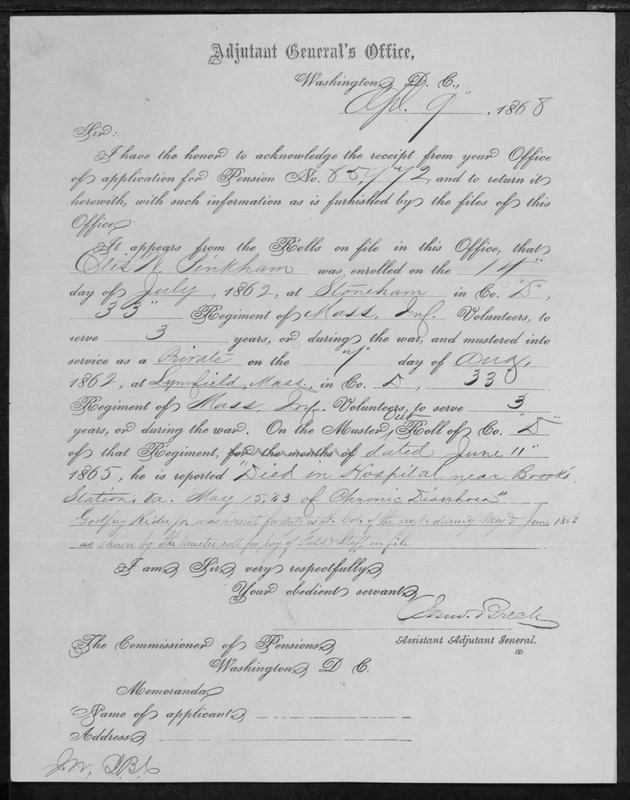 Adjutant General's Office,
Washington, D. C.,
Apl. 9", 1868
Sir:
I have the honor to acknowledge the receipt from your Office
of application for Pension No. and to return it
herewith, with such information as is furnished by the files of this
Office.
It appears from the Rolls on file in this Office, that
Otis W. Pinkham was enrolled on the 14"
day of July, 1862, at Stoneham in Co. "D",
33" Regiment of Mass. Inf. Volunteers, to
serve 3 years, or during the war, and mustered into
service as a Private on the day of Aug,
1862, at Lynnfield, Mass, in Co. D, 33d
Regiment of Mass. Inf. Volunteers, to serve 3
years, or during the war. On the Muster Out Roll of Co. "D"
of that Regiment, for the months of dated June 11"
1865, he is reported "Died in Hospital near Brooks
Station, Va. May 15. 63 of Chronic Diarrhoea"
Godfrey Rider jr was of the regt. during May & June 1863
as shown by the muster roll for pay of Field & Staff on file
I am, Sir, very respectfully,
Your obedient servant,
Saml. Breck
Assistant Adjutant General.
The Commissioner of Pensions,
Washington, D. C.
Memoranda,
Name of applicant,
Address,